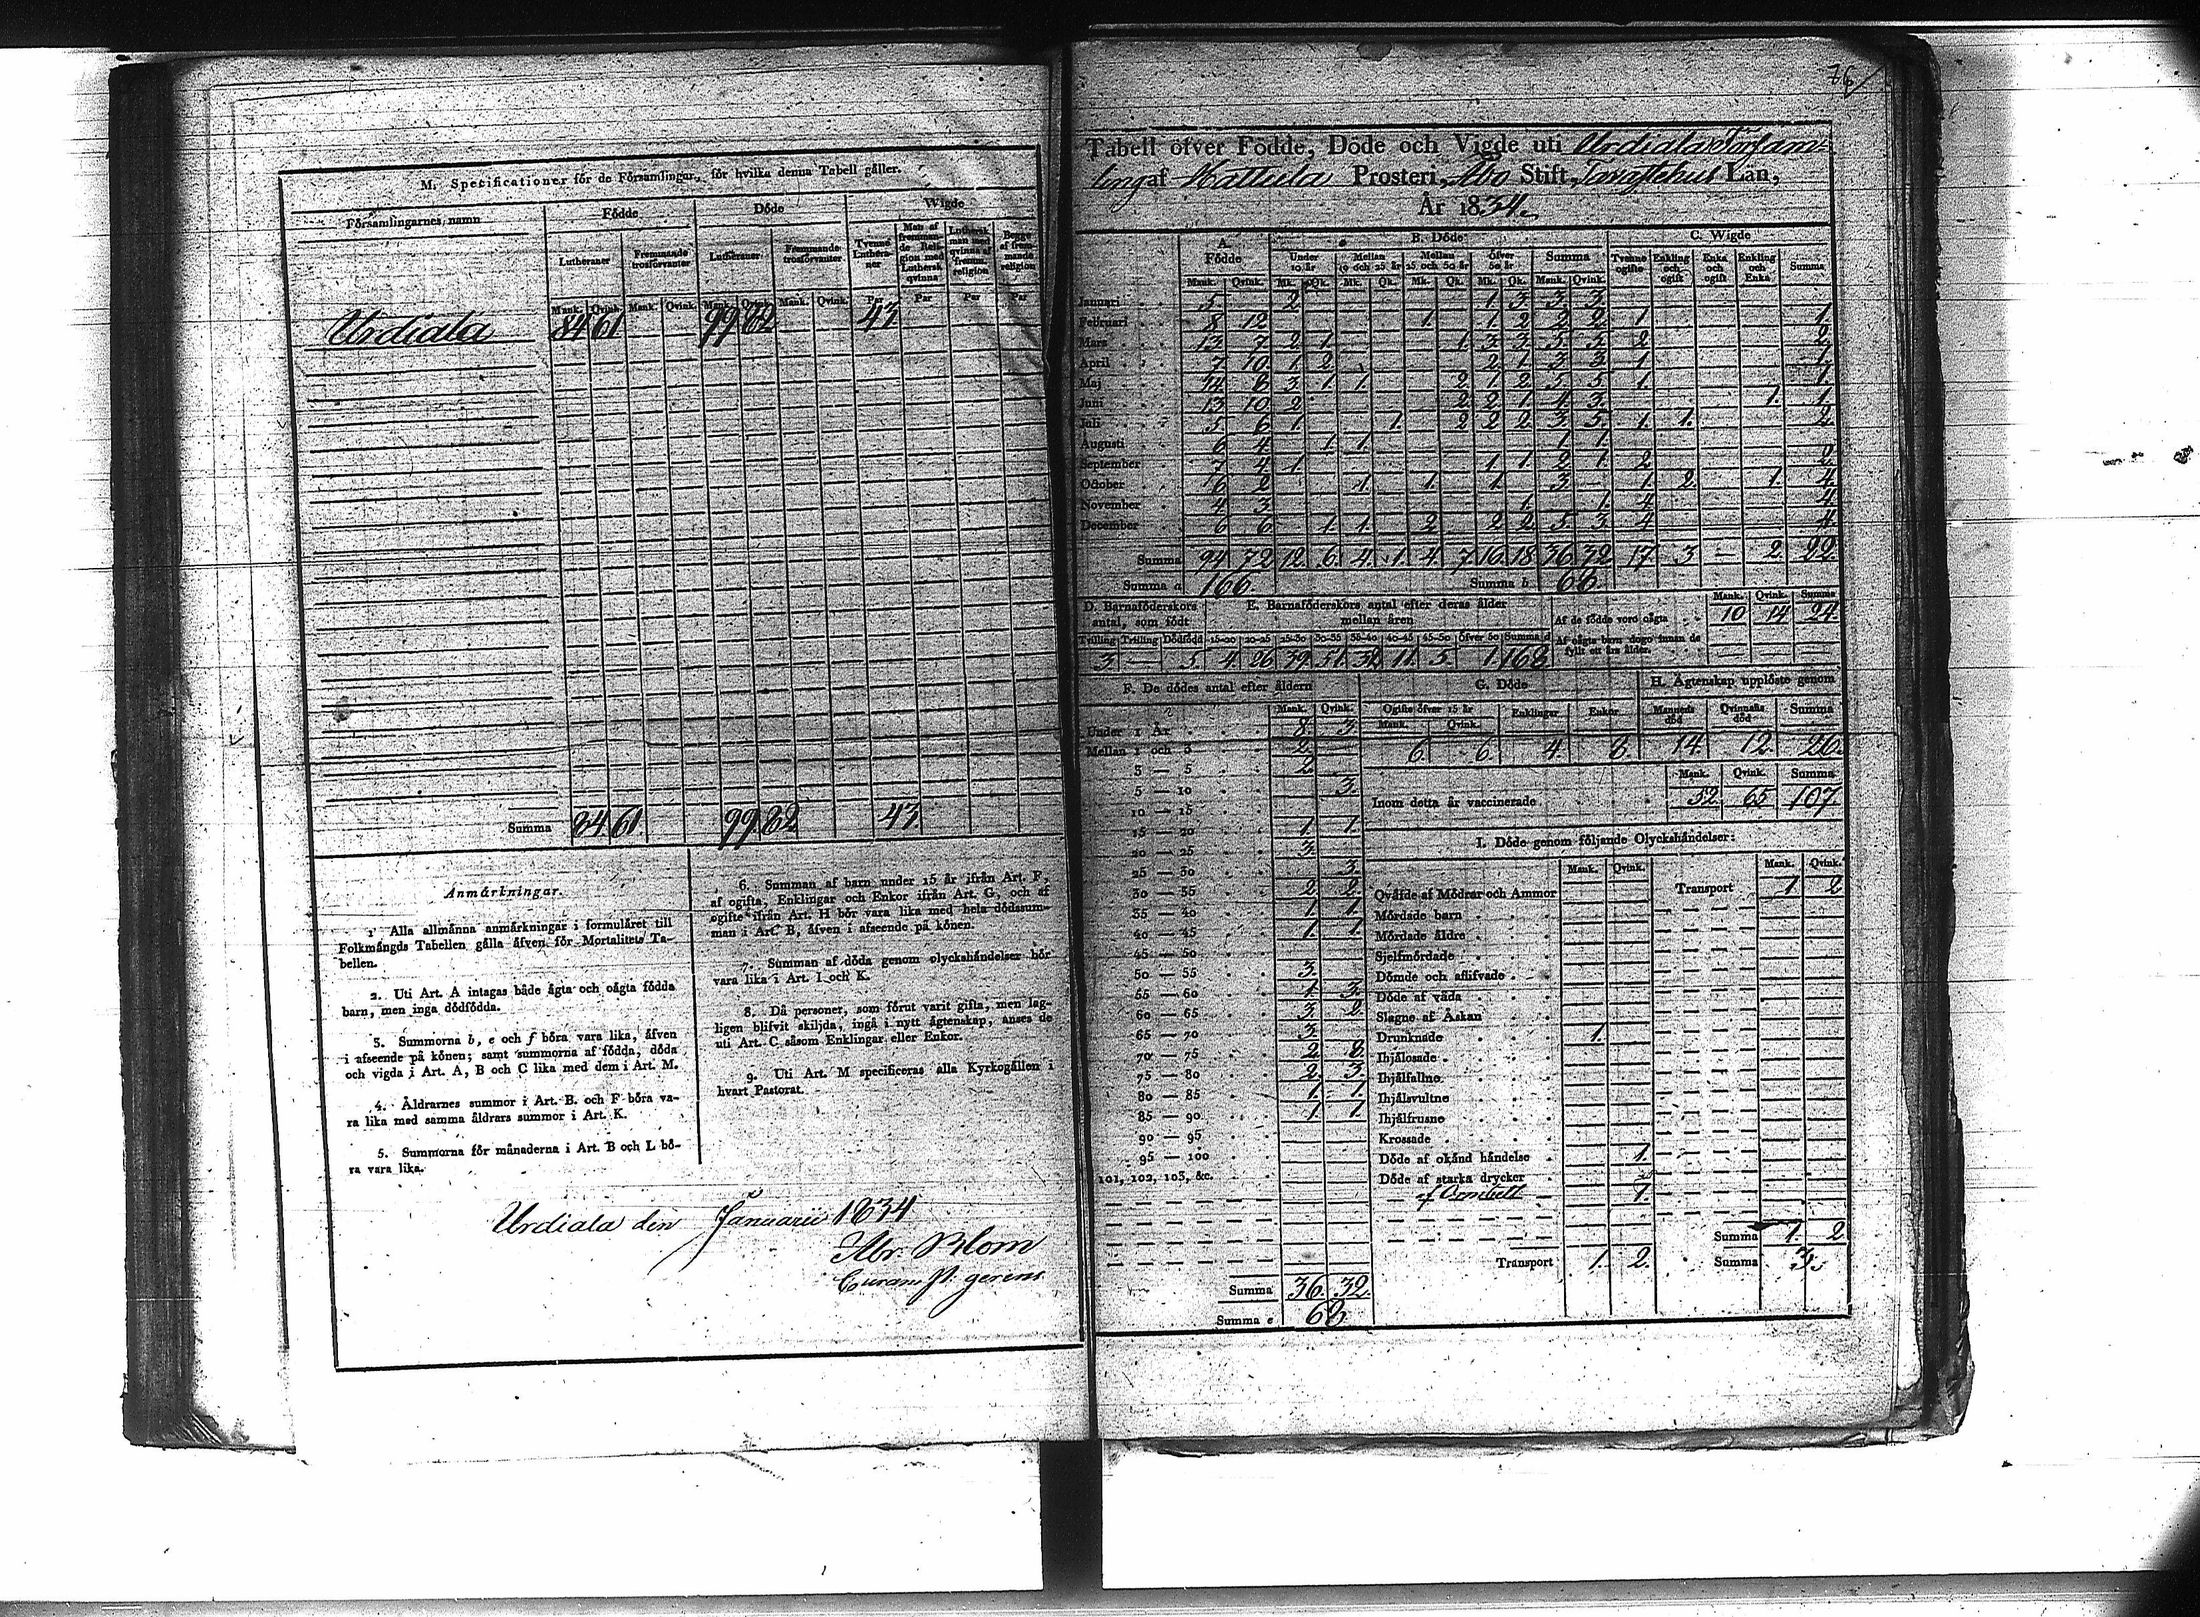 M. Specificationer för de Församlingar, för hvilka denna Tabell gäller.
Församlingarnes namn
Födde
Döde
Wigde
Lutheraner
Fremmande trosförvanter
Lutheraner
Fremmande trosförvanter
Tvenne Lutheraner
Man af fremmande Religion med Luthersk qvinna
Luthersk man med qvinna af fremm. religion
Begge af fremmande religion
Mank. Qvink. Mank. Qvink. Mank. Qvink. Mank. Qvink. Par Par Par Par
Urdiala 84 61 99 82 43
Summa 84 61 99 82 43
Anmärkningar.
1. Alla allmänna anmärkningar i formuläret till
Folkmängds Tabellen gälla äfven för Mortalitets Ta-
bellen.
2. Uti Art. A intagas både ägta och oägta födda
barn, men inga dödfödda.
3. Summorna b, e och f böra vara lika, äfven
i afseende på könen; samt summorna af födda, döda
och vigda i Art. A, B och C lika med dem i Art. M.
4. Åldrarnes summor i Art. B. och F böra va-
ra lika med samma åldrars summor i Art. K.
5. Summorna för månaderna i Art. B och L bö-
ra vara lika.
6. Summan af barn under 15 år ifrån Art. F,
af ogifta, Enklingar och Enkor ifrån Art. G, och af
ogifte ifrån Art. H bör vara lika med hela dödssum-
man i Art. B, äfven i afseende på könen.
7. Summan af döda genom olyckshändelser bör
vara lika i Art. I och K.
8. Då personer, som förut varit gifta, men lag-
ligen blifvit skiljda, ingå i nytt ägtenskap, anses de
uti Art. C såsom Enklingar eller Enkor.
9. Uti Art. M specificeras alla Kyrkogällen i
hvart Pastorat.
Urdiala den Januarii 1834
Abr. Blom
Curam P. gerens
76
Tabell öfver Födde, Döde och Vigde uti Urdiala Församling
af Hattula Prosteri, Åbo Stift, Tavastehus Län,
År 1834.
A. Födde
B. Döde
C. Wigde
Under 10 år
Mellan 10 och 25 år
Mellan 25 och 50 år
Öfver 50 år
Summa
Tvenne ogifte
Enkling och ogift
Enka och ogift
Enkling och Enka
Summa
Mank. Qvink. Mk. Qk. Mk. Qk. Mk. Qk. Mk. Qk. Mank. Qvink.
Januari 5 2 1 3 3 3
Februari 8 12 1 1 2 2 2 1 1
Mars 13 7 2 1 1 3 3 5 5 2 2
April 7 10 1 2 2 1 3 3 1 1
Maj 14 8 3 1 1 2 1 2 5 5 1 1
Juni 13 10 2 2 2 1 4 3 1 1
Juli 5 6 1 1 2 2 2 3 5 1 1 2
Augusti 6 4 1 1 1 1
September 7 4 1 1 1 2 1 2 2
October 6 2 1 1 1 3 — 1 2 1 4
November 4 3 1 1 4 4
December 6 6 1 1 2 2 2 5 3 4 4
Summa 94 72 12 6 4 1 4 7 16 18 36 32 17 3 — 2 22
Summa a 166.
Summa b 68.
D. Barnaföderskors antal, som födt
E. Barnaföderskors antal efter deras ålder mellan åren
Tvilling Trilling Dödfödd 15-20 20-25 25-30 30-35 35-40 40-45 45-50 Öfver 50 Summa d
3 — 5 4 26 39 51 32 11 5 1 168
Mank. Qvink. Summa
Af de födde voro oägta 10 14 24
Af oägta barn dogo innan de fyllt ett års ålder. — — —
F. De dödes antal efter åldern
Mank. Qvink.
Under 1 År 8 3
Mellan 1 och 3 2
3 — 5 2
5 — 10 3
10 — 15
15 — 20 1 1
20 — 25 3
25 — 30 3
30 — 35 2 2
35 — 40 1 1
40 — 45 1 1
45 — 50
50 — 55 3
55 — 60 1 3
60 — 65 3 2
65 — 70 3
70 — 75 2 8
75 — 80 2 3
80 — 85 1 1
85 — 90 1 1
90 — 95
95 — 100
101, 102, 103, &c.
Summa 36 32
Summa e 68
G. Döde
Ogifte öfver 15 år
Mank. Qvink. Enklingar Enkor
6 6 4 8
H. Ägtenskap upplöste genom
Mannens död Qvinnans död Summa
14 12 26
Mank. Qvink. Summa
Inom detta år vaccinerade 52 65 107
I. Döde genom följande Olyckshändelser:
Mank. Qvink. Mank. Qvink.
Qväfde af Mödrar och Ammor
Mördade barn
Mördade äldre
Sjelfmördade
Dömde och aflifvade
Döde af våda
Slagne af Åskan
Drunknade 1
Ihjälosade
Ihjälfallne
Ihjälsvultne
Ihjälfrusne
Krossade
Döde af okänd händelse 1
Döde af starka drycker
1
Transport 1 2
Transport 1 2
Summa 1 2
Summa 3